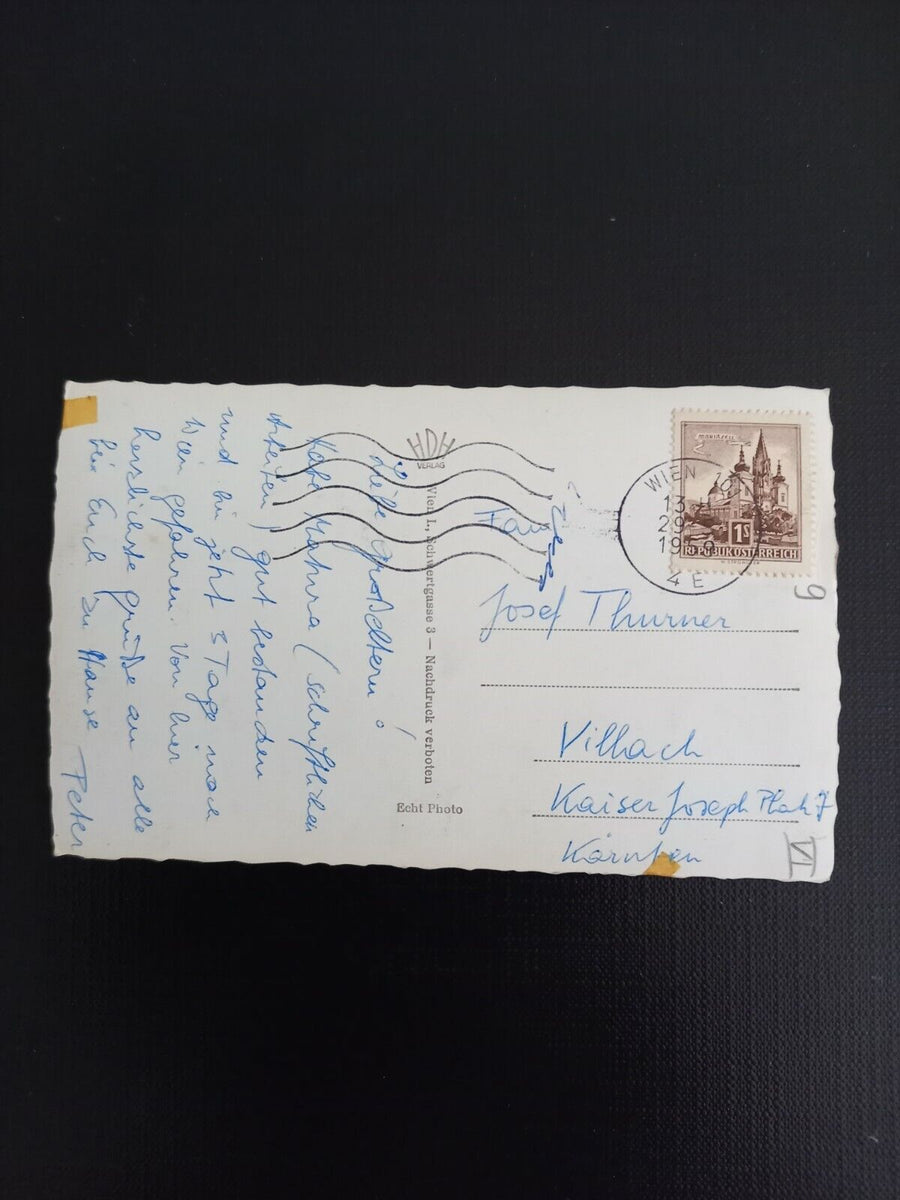 Liebe Großeltern!
Habe Matura (schriftlichen
Arbeiten) gut bestanden
und bin jetzt 3 Tage nach
Wien gefahren. Von hier
herzlichste Grüße an alle
bei Euch zu Hause Peter
HDH
VERLAG
Wien I., Schwertgasse 3 — Nachdruck verboten
Echt Photo
MARIAZELL
1S
REPUBLIK ÖSTERREICH
WIEN
13
29
4 E
Fam
Josef Thurner
Villach
Kaiser Joseph Platz 7
Kärnten
9
VI